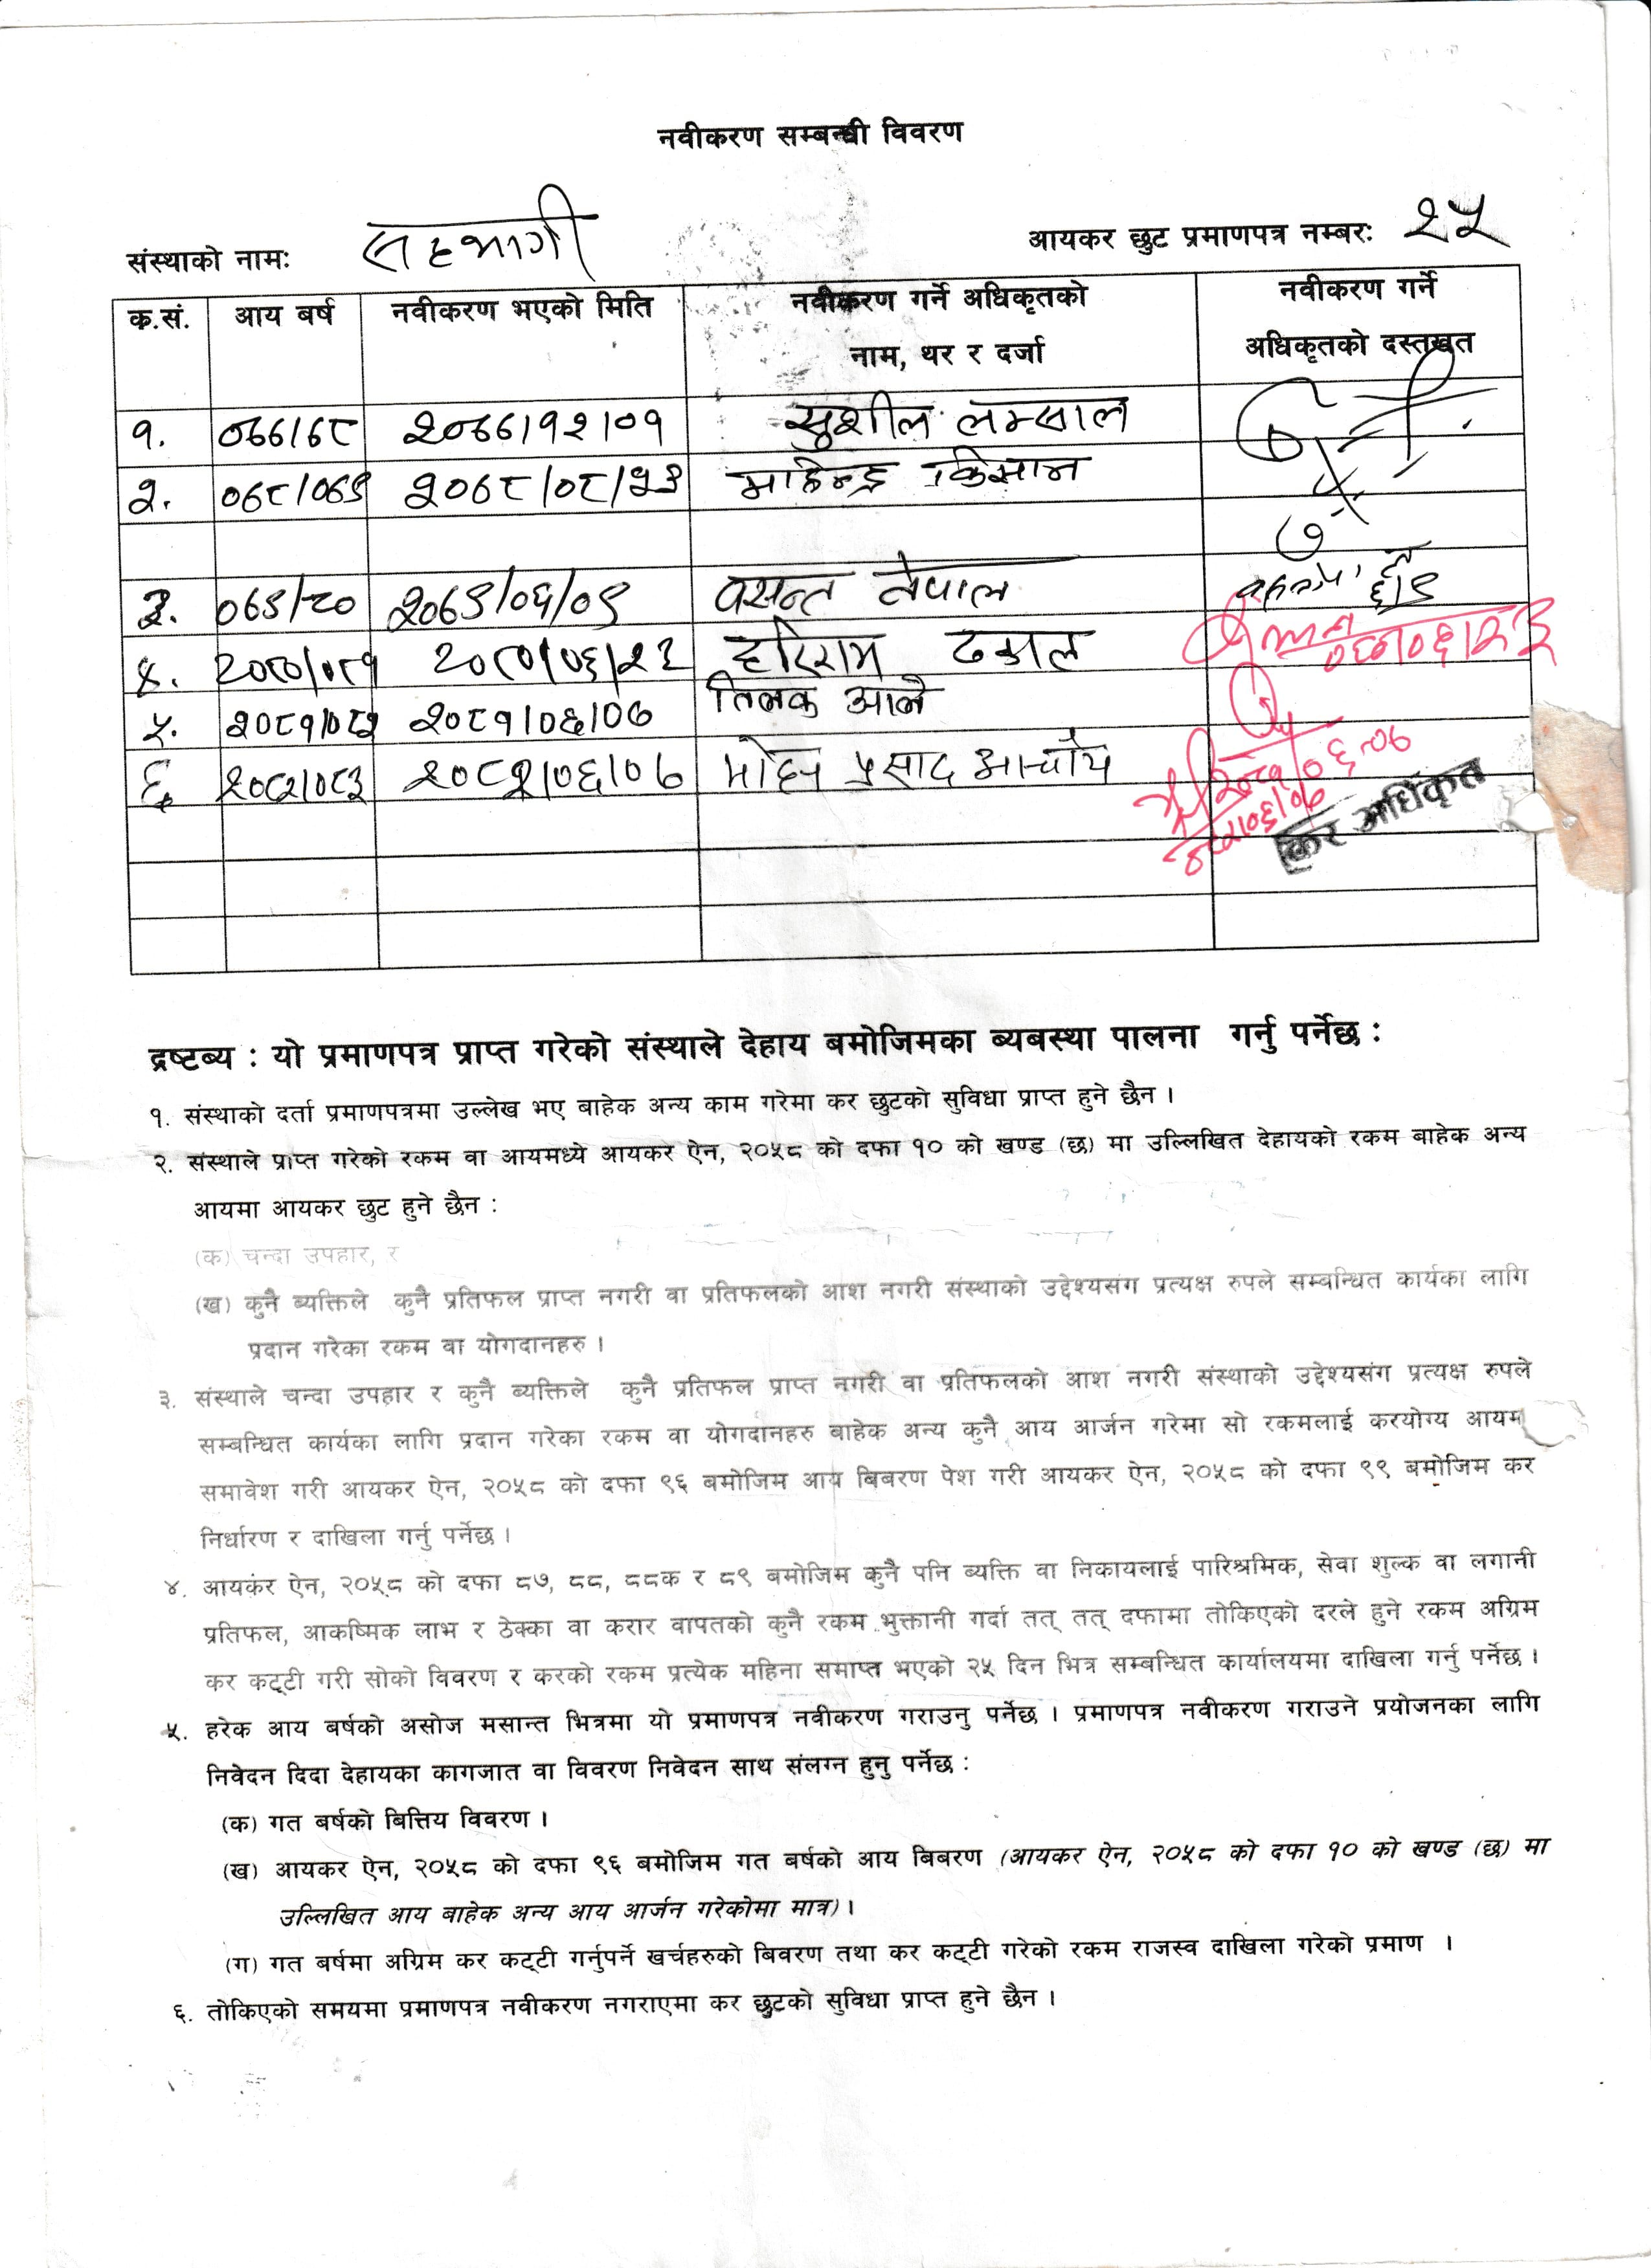 नवीकरण सम्बन्धी विवरण
संस्थाको नामः सहभागी
आयकर छुट प्रमाणपत्र नम्बरः २५
क.सं. आय बर्ष नवीकरण भएको मिति नवीकरण गर्ने अधिकृतको नाम, थर र दर्जा नवीकरण गर्ने अधिकृतको दस्तखत
१. ०७७/७८ २०७७/१२/०१ सुशील लम्साल
२. ०७८/०७९ २०७८/०८/ किसान
३. ०७९/८० २०७९/०६/०९ वसन्त नेपाल
४. २०८०/०८१ २०८०/०६/२३ हरिराम ढकाल
५. २०८१/०८२ २०८१/०६/०७ तिलक आले
६ २०८२/०८३ २०८२/०६/०७ मोहन प्रसाद आचार्य
कर अधिकृत
द्रष्टब्य : यो प्रमाणपत्र प्राप्त गरेको संस्थाले देहाय बमोजिमका ब्यबस्था पालना गर्नु पर्नेछ :
१. संस्थाको दर्ता प्रमाणपत्रमा उल्लेख भए बाहेक अन्य काम गरेमा कर छुटको सुविधा प्राप्त हुने छैन ।
२. संस्थाले प्राप्त गरेको रकम वा आयमध्ये आयकर ऐन, २०५८ को दफा १० को खण्ड (छ) मा उल्लिखित देहायको रकम बाहेक अन्य
आयमा आयकर छुट हुने छैन :
(क) चन्दा उपहार, र
(ख) कुनै ब्यक्तिले कुनै प्रतिफल प्राप्त नगरी वा प्रतिफलको आश नगरी संस्थाको उद्देश्यसंग प्रत्यक्ष रुपले सम्बन्धित कार्यका लागि
प्रदान गरेका रकम वा योगदानहरु ।
३. संस्थाले चन्दा उपहार र कुनै ब्यक्तिले कुनै प्रतिफल प्राप्त नगरी वा प्रतिफलको आश नगरी संस्थाको उद्देश्यसंग प्रत्यक्ष रुपले
सम्बन्धित कार्यका लागि प्रदान गरेका रकम वा योगदानहरु बाहेक अन्य कुनै आय आर्जन गरेमा सो रकमलाई करयोग्य आयम
समावेश गरी आयकर ऐन, २०५८ को दफा ९६ बमोजिम आय बिबरण पेश गरी आयकर ऐन, २०५८ को दफा ९९ बमोजिम कर
निर्धारण र दाखिला गर्नु पर्नेछ ।
४. आयकर ऐन, २०५८ को दफा ८७, ८८, ८८क र ८९ बमोजिम कुनै पनि ब्यक्ति वा निकायलाई पारिश्रमिक, सेवा शुल्क वा लगानी
प्रतिफल, आकष्मिक लाभ र ठेक्का वा करार वापतको कुनै रकम भुक्तानी गर्दा तत् तत् दफामा तोकिएको दरले हुने रकम अग्रिम
कर कट्टी गरी सोको विवरण र करको रकम प्रत्येक महिना समाप्त भएको २५ दिन भित्र सम्बन्धित कार्यालयमा दाखिला गर्नु पर्नेछ ।
५. हरेक आय बर्षको असोज मसान्त भित्रमा यो प्रमाणपत्र नवीकरण गराउनु पर्नेछ । प्रमाणपत्र नवीकरण गराउने प्रयोजनका लागि
निवेदन दिदा देहायका कागजात वा विवरण निवेदन साथ संलग्न हुनु पर्नेछ :
(क) गत बर्षको बित्तिय विवरण ।
(ख) आयकर ऐन, २०५८ को दफा ९६ बमोजिम गत बर्षको आय बिबरण (आयकर ऐन, २०५८ को दफा १० को खण्ड (छ) मा
उल्लिखित आय बाहेक अन्य आय आर्जन गरेकोमा मात्र) ।
(ग) गत बर्षमा अग्रिम कर कट्टी गर्नुपर्ने खर्चहरुको बिवरण तथा कर कट्टी गरेको रकम राजस्व दाखिला गरेको प्रमाण ।
६. तोकिएको समयमा प्रमाणपत्र नवीकरण नगराएमा कर छुटको सुविधा प्राप्त हुने छैन ।